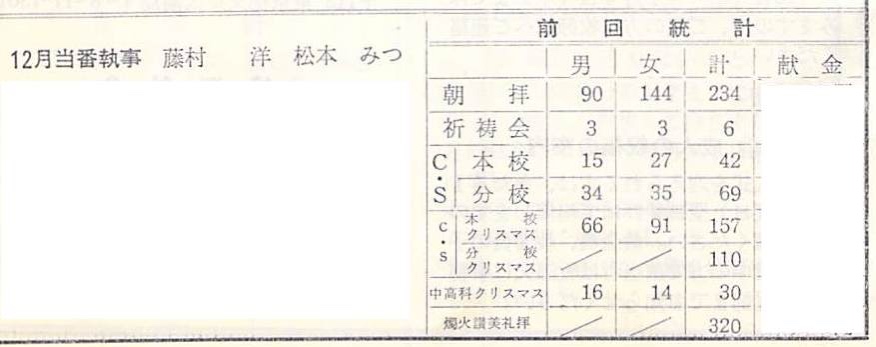 12月当番執事 藤村 洋 松本 みつ
前回統計
男 女 計 献金
朝拝 90 144 234
祈祷会 3 3 6
C・S 本校 15 27 42
分校 34 35 69
C・S 本校クリスマス 66 91 157
分校クリスマス / / 110
中高科クリスマス 16 14 30
燭火讃美礼拝 / / 320